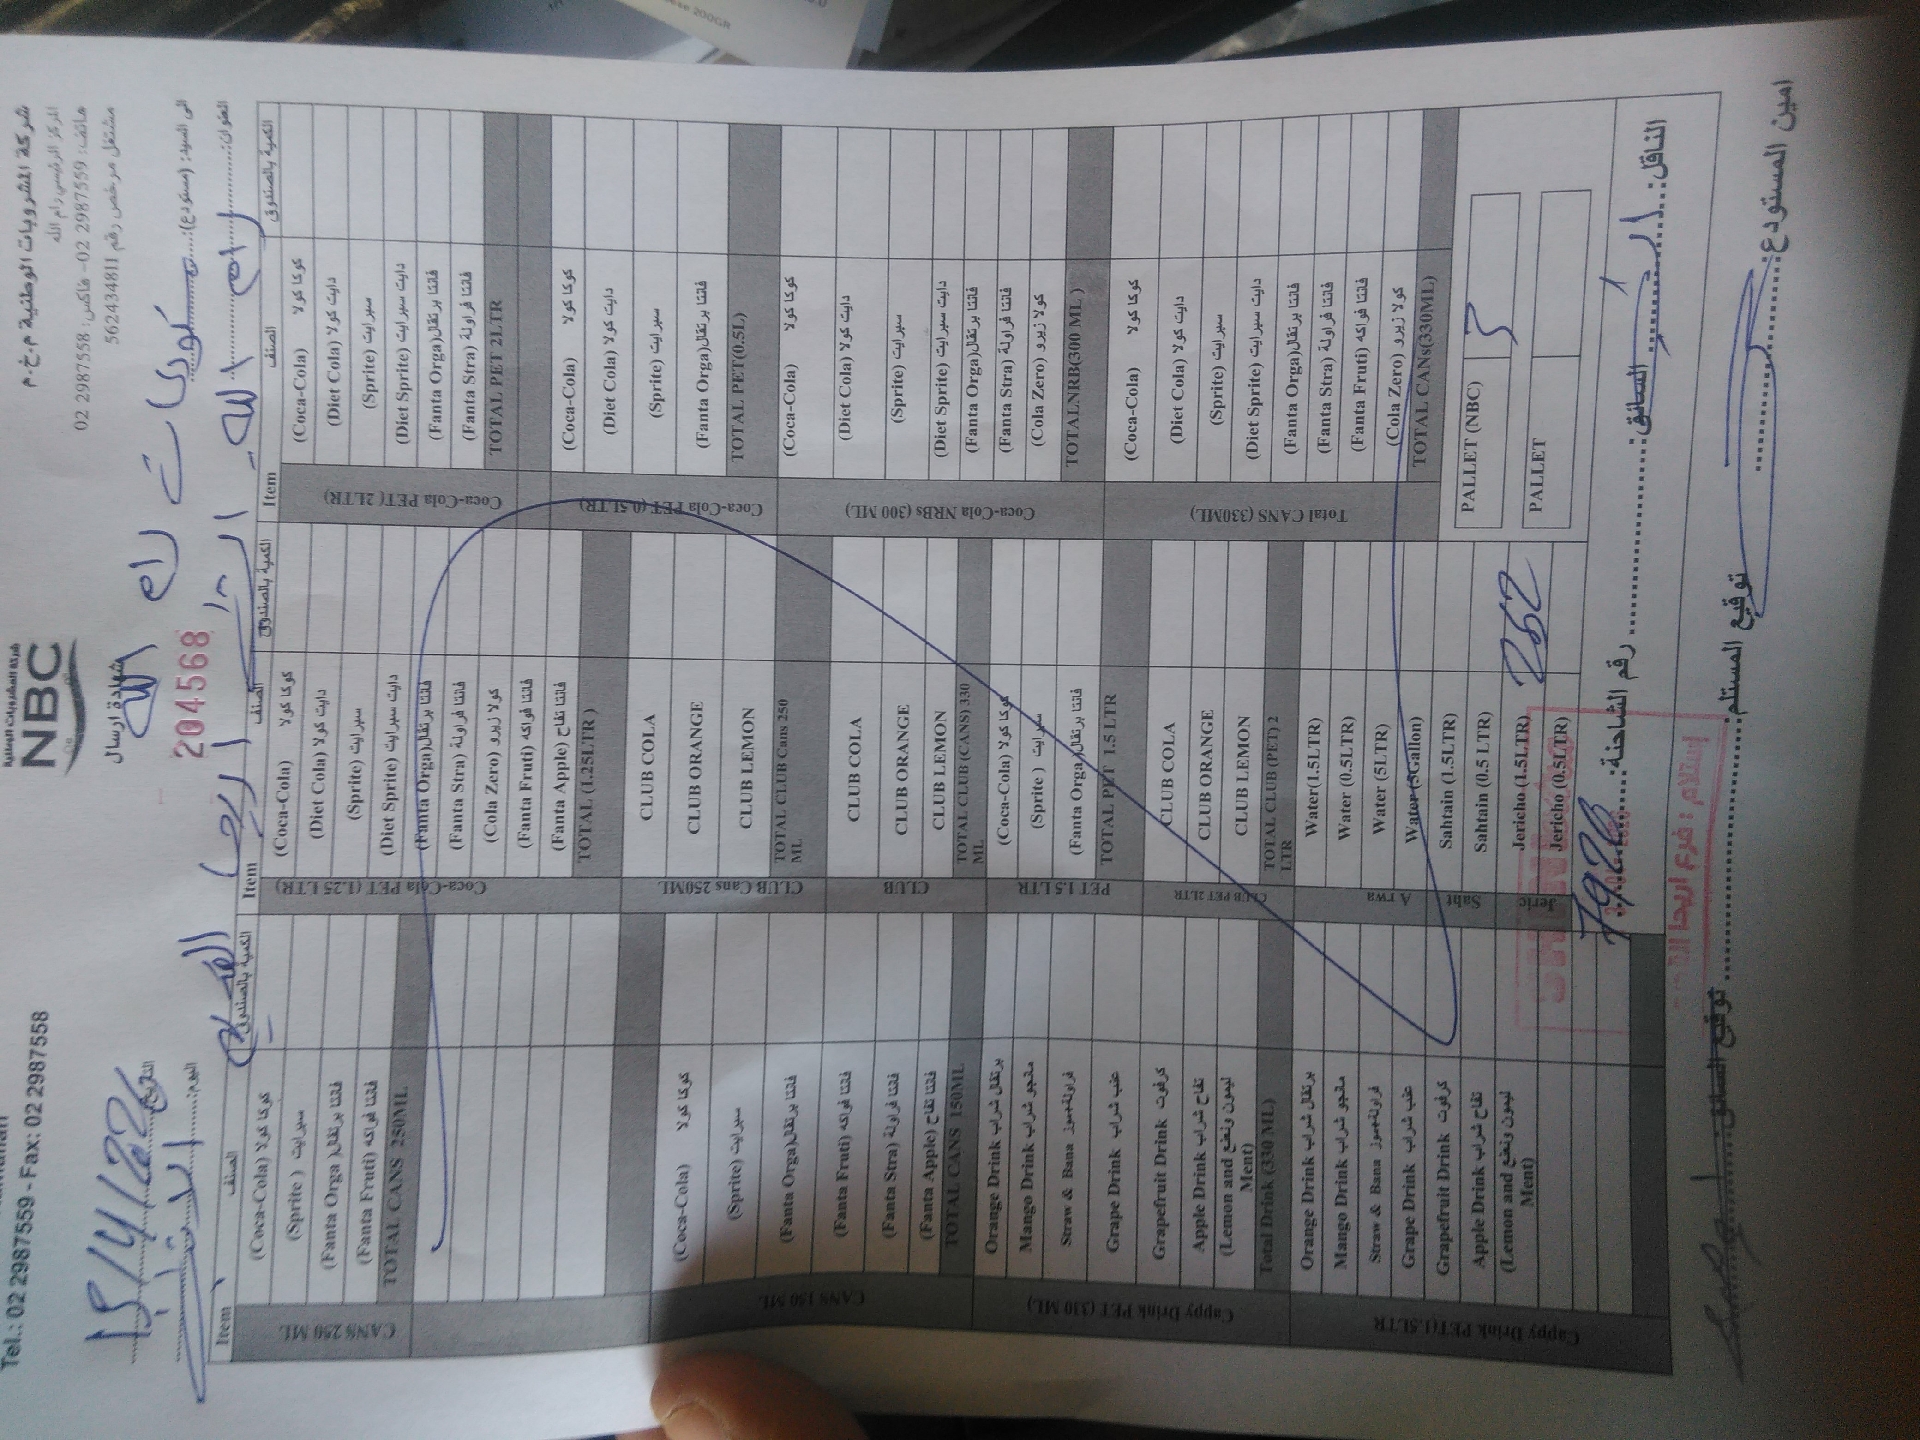 شركة المشروبات الوطنية م.خ.م
المركز الرئيسي رام الله
هاتف: 2987559 02- فاكس: 2987558 02
مشتغل مرخص رقم 562434811
شركة المشروبات الوطنية
NBC
Tel.: 02 2987559 - Fax: 02 2987558
شهادة ارسال
204568
الى السيد: (مستودع):
رام الله
العنوان:
التاريخ
اليوم:
الكمية بالصندوق
الصنف
Item
الكمية بالصندوق
الصنف
Item
الكمية بالصندوق
الصنف
Item
Coca-Cola PET (2LTR)
(Coca-Cola) كوكا كولا
(Diet Cola) دايت كولا
(Sprite) سبرايت
(Diet Sprite) دايت سبرايت
(Fanta Orga) فانتا برتقال
(Fanta Stra) فانتا فراولة
TOTAL PET 2LTR
Coca-Cola PET (0.5LTR)
(Coca-Cola) كوكا كولا
(Diet Cola) دايت كولا
(Sprite) سبرايت
(Fanta Orga) فانتا برتقال
TOTAL PET(0.5L)
Coca-Cola NRBs (300 ML)
(Coca-Cola) كوكا كولا
(Diet Cola) دايت كولا
(Sprite) سبرايت
(Diet Sprite) دايت سبرايت
(Fanta Orga) فانتا برتقال
(Fanta Stra) فانتا فراولة
(Cola Zero) كولا زيرو
TOTALNRB(300 ML )
Total CANS (330ML)
(Coca-Cola) كوكا كولا
(Diet Cola) دايت كولا
(Sprite) سبرايت
(Diet Sprite) دايت سبرايت
(Fanta Orga) فانتا برتقال
(Fanta Stra) فانتا فراولة
(Fanta Fruti) فانتا فواكه
(Cola Zero) كولا زيرو
TOTAL CANs(330ML)
PALLET (NBC)
PALLET
Coca-Cola PET (1.25 LTR)
(Coca-Cola) كوكا كولا
(Diet Cola) دايت كولا
(Sprite) سبرايت
(Diet Sprite) دايت سبرايت
(Fanta Orga) فانتا برتقال
(Fanta Stra) فانتا فراولة
(Cola Zero) كولا زيرو
(Fanta Fruti) فانتا فواكه
(Fanta Apple) فانتا تفاح
TOTAL (1.25LTR )
CLUB Cans 250ML
CLUB COLA
CLUB ORANGE
CLUB LEMON
TOTAL CLUB Cans 250 ML
CLUB
CLUB COLA
CLUB ORANGE
CLUB LEMON
TOTAL CLUB (CANS) 330 ML
PET 1.5 LTR
(Coca-Cola) كوكا كولا
(Sprite ) سبرايت
(Fanta Orga) فانتا برتقال
TOTAL PET 1.5 LTR
CLUB PET 2LTR
CLUB COLA
CLUB ORANGE
CLUB LEMON
TOTAL CLUB (PET) 2 LTR
Arwa
Water(1.5LTR)
Water (0.5LTR)
Water (5LTR)
Water (5Gallon)
Saht
Sahtain (1.5LTR)
Sahtain (0.5 LTR)
Jeric
Jericho (1.5LTR) 252
Jericho (0.5LTR)
CANS 250 ML
(Coca-Cola) كوكا كولا
(Sprite ) سبرايت
(Fanta Orga ) فانتا برتقال
(Fanta Fruti) فانتا فواكه
TOTAL CANS 250ML
CANS 150 ML
(Coca-Cola) كوكا كولا
(Sprite) سبرايت
(Fanta Orga) فانتا برتقال
(Fanta Fruti) فانتا فواكه
(Fanta Stra) فانتا فراولة
(Fanta Apple) فانتا تفاح
TOTAL CANS 150ML
Cappy Drink PET (330 ML)
Orange Drink برتقال شراب
Mango Drink مانجو شراب
Straw & Bana فراولة+موز
Grape Drink عنب شراب
Grapefruit Drink كرفوت
Apple Drink تفاح شراب
(Lemon and ليمون ونعنع Ment)
Total Drink (330 ML)
Cappy Drink PET(1.5LTR
Orange Drink برتقال شراب
Mango Drink مانجو شراب
Straw & Bana فراولة+موز
Grape Drink عنب شراب
Grapefruit Drink كرفوت
Apple Drink تفاح شراب
(Lemon and ليمون ونعنع Ment)
الناقل:
السائق:
رقم الشاحنة:
امين المستودع:
توقيع المستلم:
توقيع السائق:
إستلام : فرع اريحا